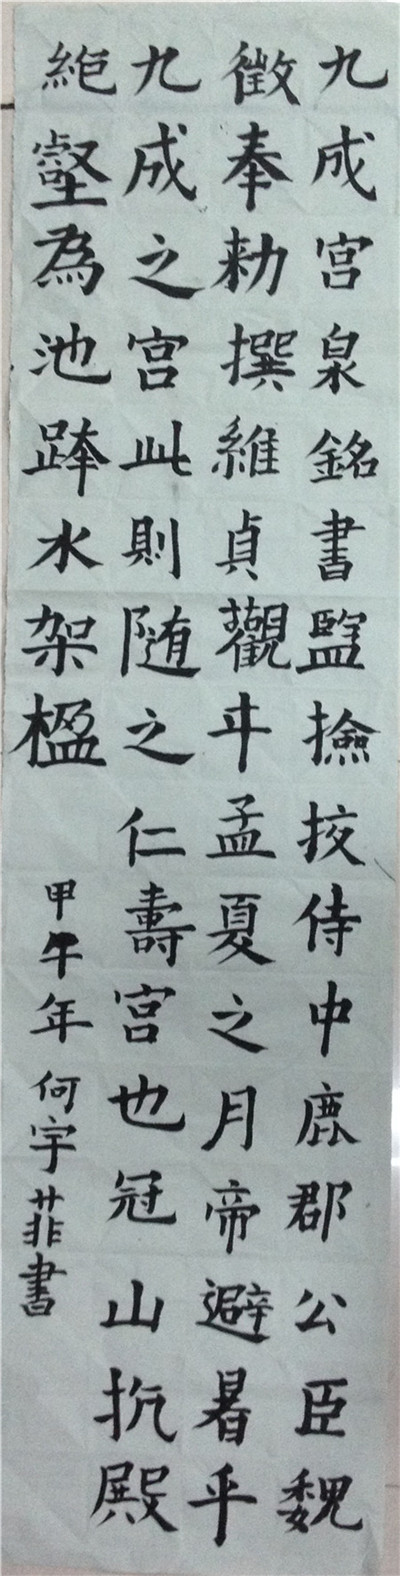 九成宫泉銘書監撿挍侍中鹿郡公臣魏
徵奉勑撰維貞觀年孟夏之月帝避暑乎
九成之宫此則随之仁壽宫也冠山抗殿
絶壑為池跨水架楹
甲午年何宇菲書